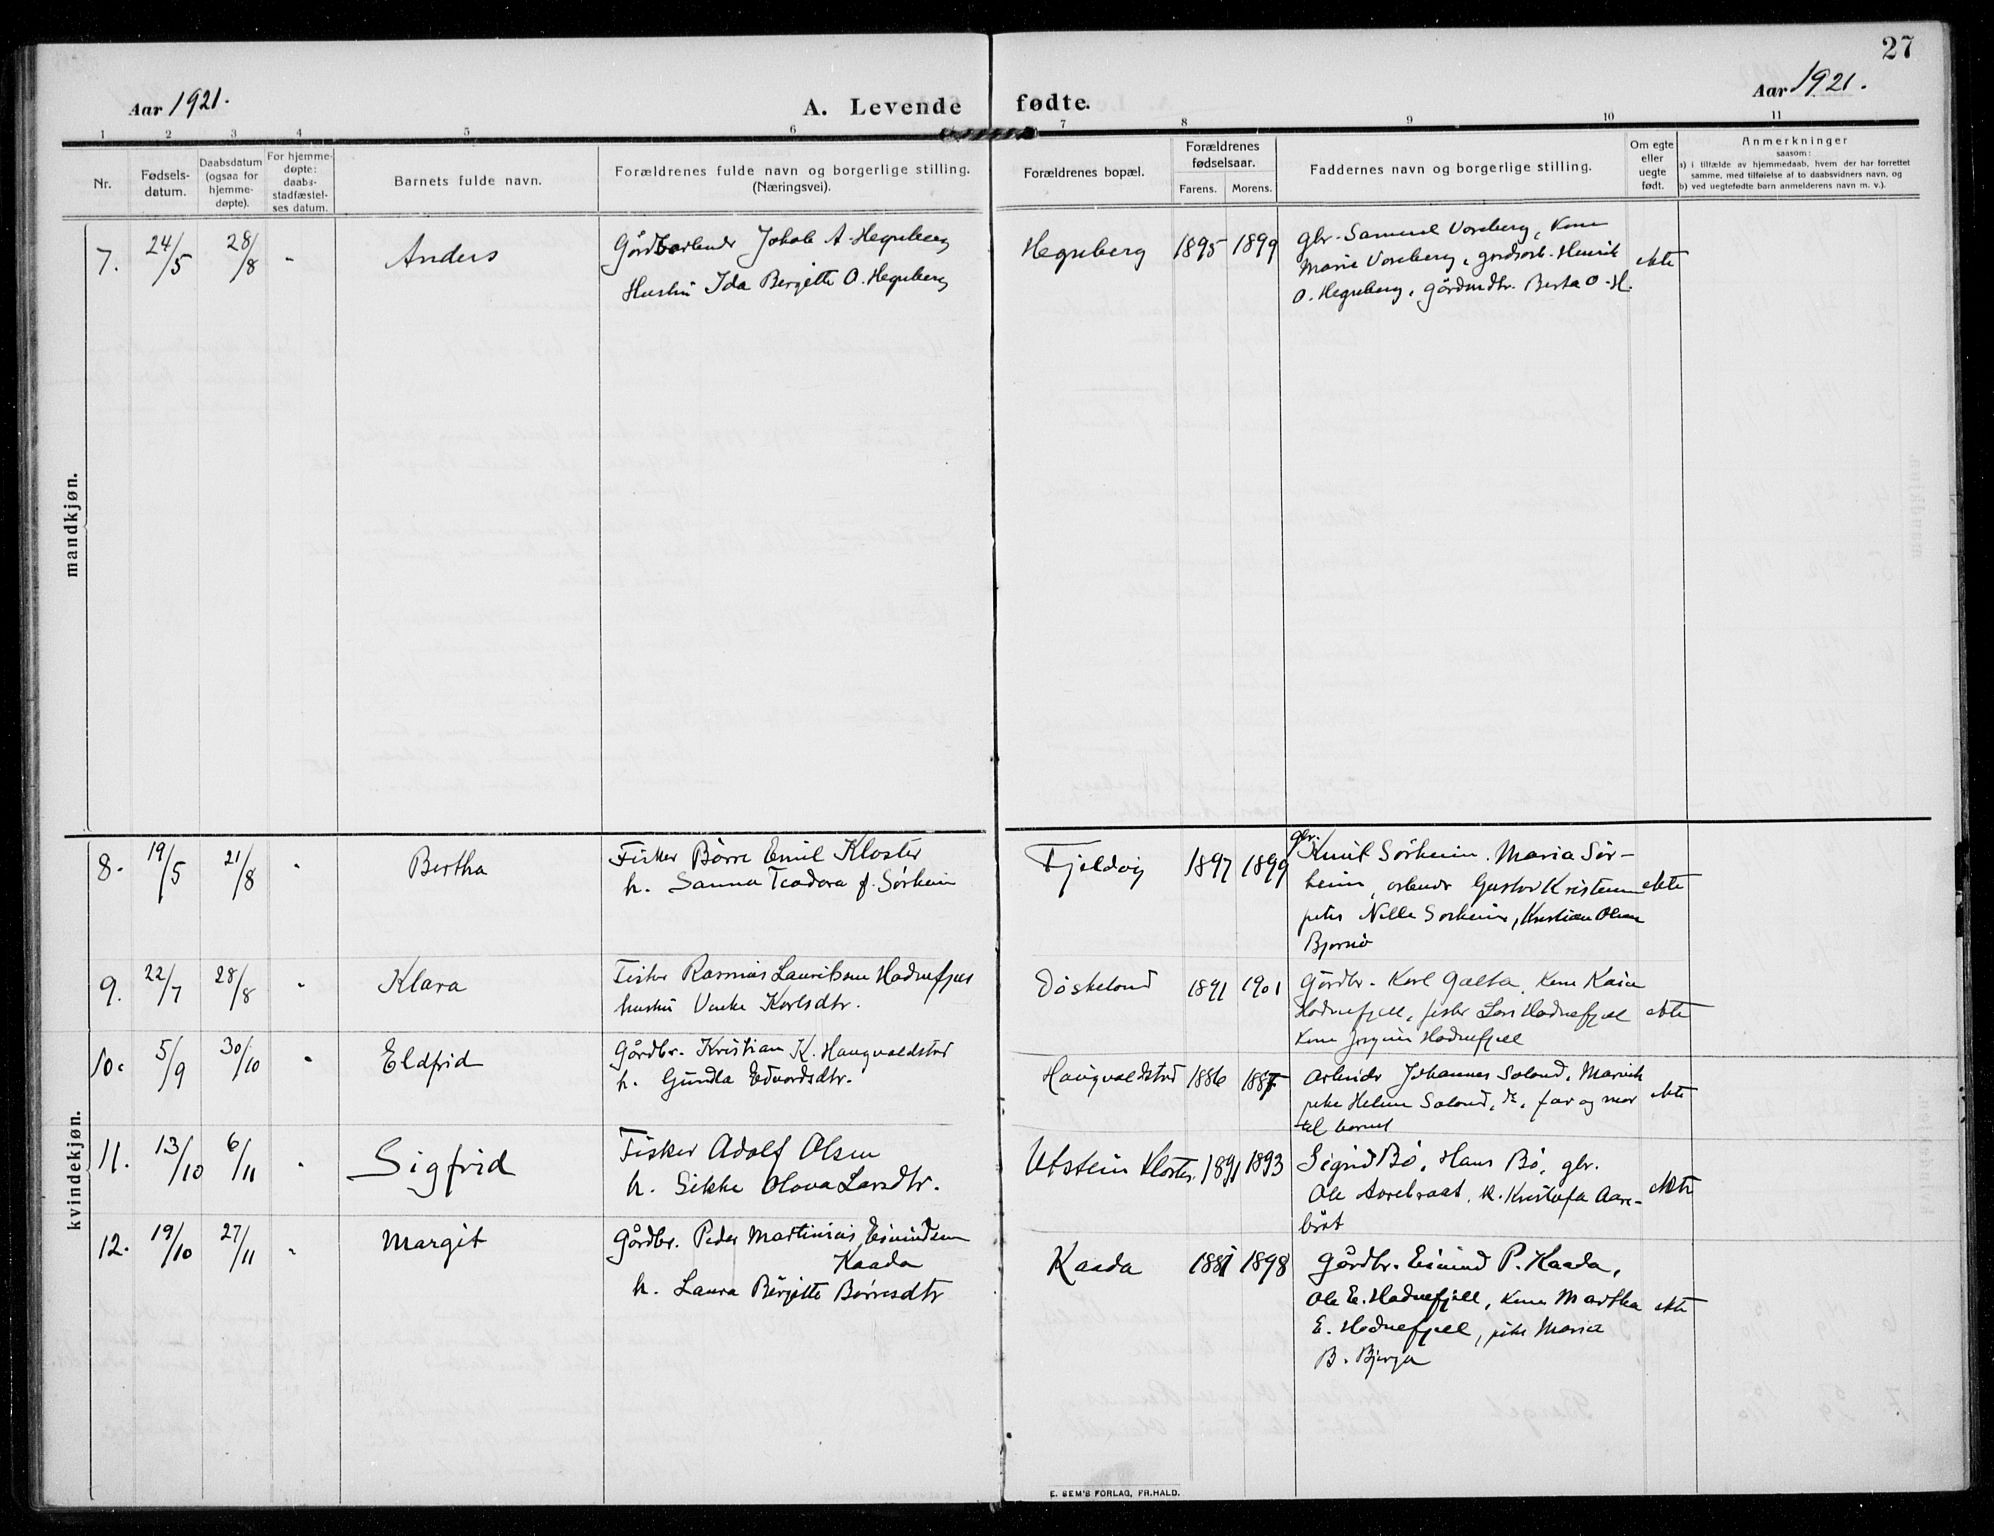 27
Aar 1921.
A. Levende fødte.
Aar 1921.
1 2 3 4 5 6 7 8 9 10 11
Nr.
Fødsels-
datum.
Daabsdatum
(ogsaa for
hjemme-
døpte).
For hjemme-
døpte:
daabs-
stadfæstel-
ses datum.
Barnets fulde navn.
Forældrenes fulde navn og borgerlige stilling.
(Næringsvei).
Forældrenes bopæl.
Forældrenes
fødselsaar.
Farens. Morens.
Faddernes navn og borgerlige stilling.
Om egte
eller
uegte
født.
Anmerkninger
saasom:
a) i tilfælde av hjemmedaab, hvem der har forrettet
samme, med tilføielse af to daabsvidners navn, og
b) ved uegtefødte barn anmelderens navn m. v.).
mandkjøn.
7. 24/5 28/8 " Anders
Gårdbarbeider Jakob A. Hegreberg
Hustru Ida Bergitte O. Hegreberg
Hegreberg 1895 1899
gbr. Samuel Voreberg, Kone
Marie Voreberg, gardsarb. Henrik
O. Hegreberg, gårdmdtr. Berta O. H.
ekte
kvindekjøn.
8. 19/5 21/8 " Bertha
Fisker Børre Emil Kloster
h. Sanna Teodora f. Sørheim
Fjeldvig 1897 1899
gbr. Knut Sørheim, Maria Sør-
heim, arbeidr Gustav Kristensen
pike Nille Sørheim, Kristian Olsen
Bjørnø
ekte
9. 22/7 28/8 " Klara
Fisker Rasmus Lauritsen Hodnefjell
hustru Venke Karlsdtr.
Døskeland 1891 1901
Gårdbr. Karl Galta, Kone Kaia
Hodnefjell, fisker Lars Hodnefjell
Kone Jorgine Hodnefjell
ekte
10. 5/9 30/10 " Eldfrid
Gårdbr. Kristian K. Haugvaldstad
h. Gunda Edvardsdtr.
Haugvaldstad 1886 1887
Arbeidr Johannes Soland, Marvik
pike Helene Soland, d., far og mor
til barnet
ekte
11. 13/10 6/11 " Sigfrid
Fisker Adolf Olsen
h. Sikke Olova Larsdtr.
Utstein Kloster 1891 1893
Sigrid Bø, Hans Bø, gbr.
Ole Aarebraat, k. Kristofa Aare-
bråt
ekte
12. 19/10 27/11 " Margit
Gårdbr. Peder Martinius Eivindsen
Kaada
h. Laura Bergitte Børresdtr
Kaada 1881 1898
Gårdbr. Eivind P. Kaada,
Ole E. Hodnefjell, Kone Martha
E. Hodnefjell, pike Maria
B. Bjerga
ekte
E. SEM'S FORLAG, FR.HALD.